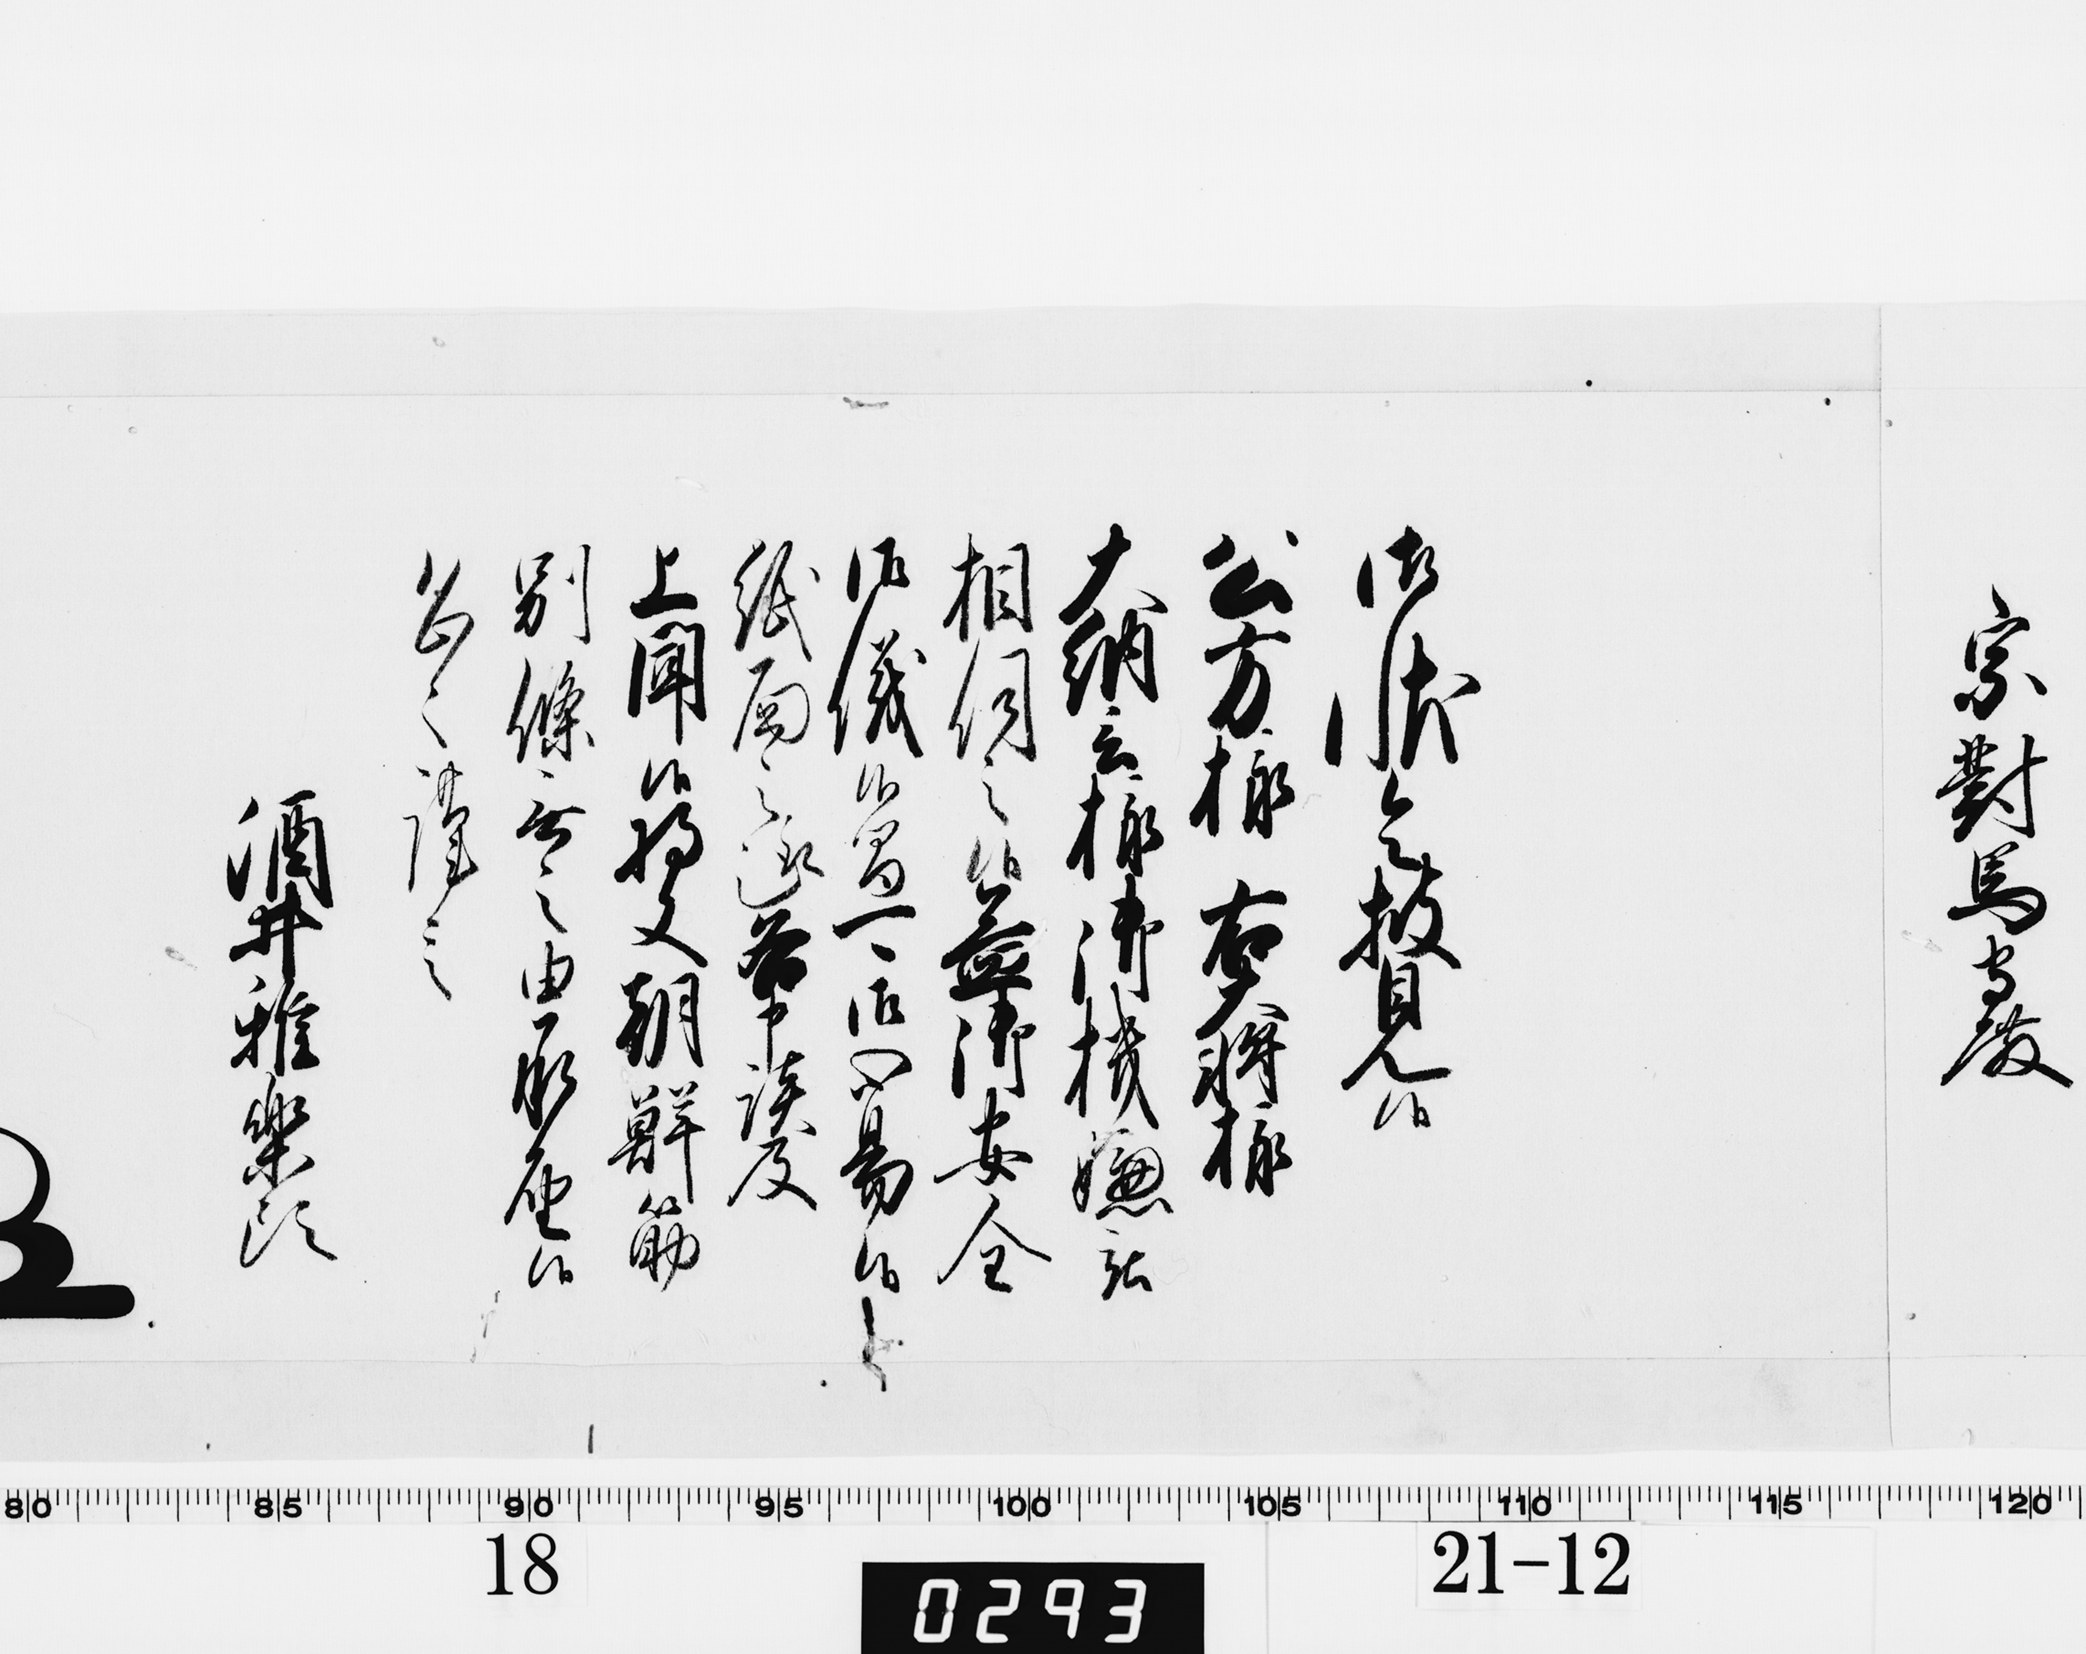 宗對馬守殿
御状令披見候
公方様右大将様
大納言様御機嫌被
相伺之候益御安全
御儀候畢可御心易候
紙面之趣各申談及
上聞候将又朝鮮筋
別條無之由承届候
恐々謹言
酒井雅楽頭
80 85 90 95 100 105 110 115 120
18
0293
21-12